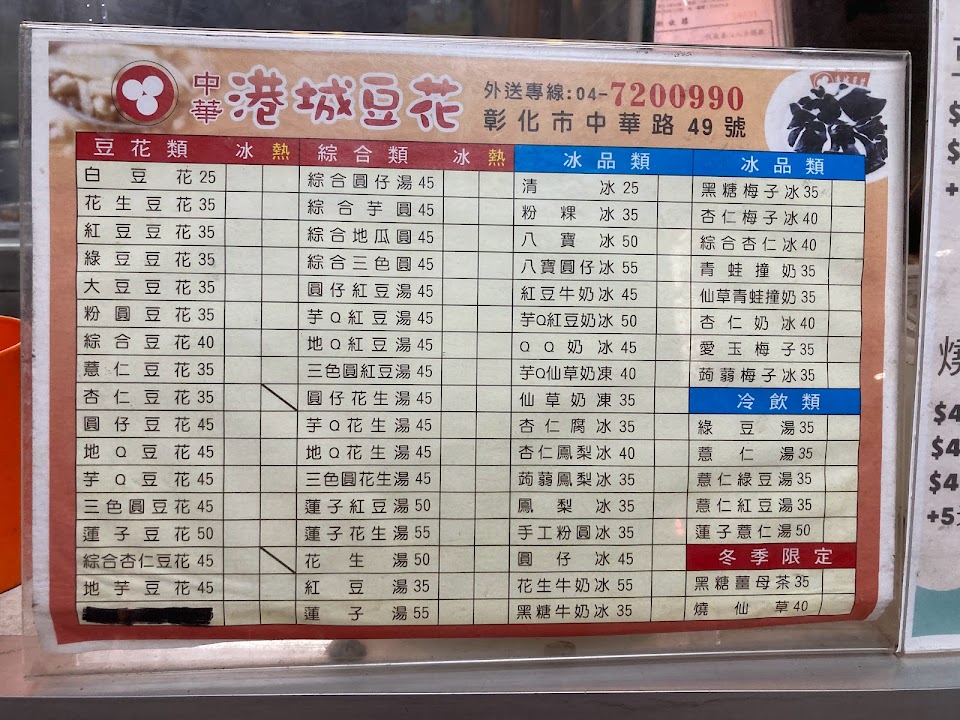 中華 港城豆花
外送專線:04-7200990
彰化市中華路 49 號
豆花類 冰 熱
白豆花 25
花生豆花 35
紅豆豆花 35
綠豆豆花 35
大豆豆花 35
粉圓豆花 35
綜合豆花 40
薏仁豆花 35
杏仁豆花 35
圓仔豆花 45
地Q豆花 45
芋Q豆花 45
三色圓豆花 45
蓮子豆花 50
綜合杏仁豆花 45
地芋豆花 45
綜合類 冰 熱
綜合圓仔湯 45
綜合芋圓 45
綜合地瓜圓 45
綜合三色圓 45
圓仔紅豆湯 45
芋Q紅豆湯 45
地Q紅豆湯 45
三色圓紅豆湯 45
圓仔花生湯 45
芋Q花生湯 45
地Q花生湯 45
三色圓花生湯 45
蓮子紅豆湯 50
蓮子花生湯 55
花生湯 50
紅豆湯 35
蓮子湯 55
冰品類
清冰 25
粉粿冰 35
八寶冰 50
八寶圓仔冰 55
紅豆牛奶冰 45
芋Q紅豆奶冰 50
QQ奶冰 45
芋Q仙草奶凍 40
仙草奶凍 35
杏仁腐冰 35
杏仁鳳梨冰 40
蒟蒻鳳梨冰 35
鳳梨冰 35
手工粉圓冰 35
圓仔冰 45
花生牛奶冰 55
黑糖牛奶冰 35
冰品類
黑糖梅子冰 35
杏仁梅子冰 40
綜合杏仁冰 40
青蛙撞奶 35
仙草青蛙撞奶 35
杏仁奶冰 40
愛玉梅子 35
蒟蒻梅子冰 35
冷飲類
綠豆湯 35
薏仁湯 35
薏仁綠豆湯 35
薏仁紅豆湯 35
蓮子薏仁湯 50
冬季限定
黑糖薑母茶 35
燒仙草 40
燒
$4
$4
$4
+5